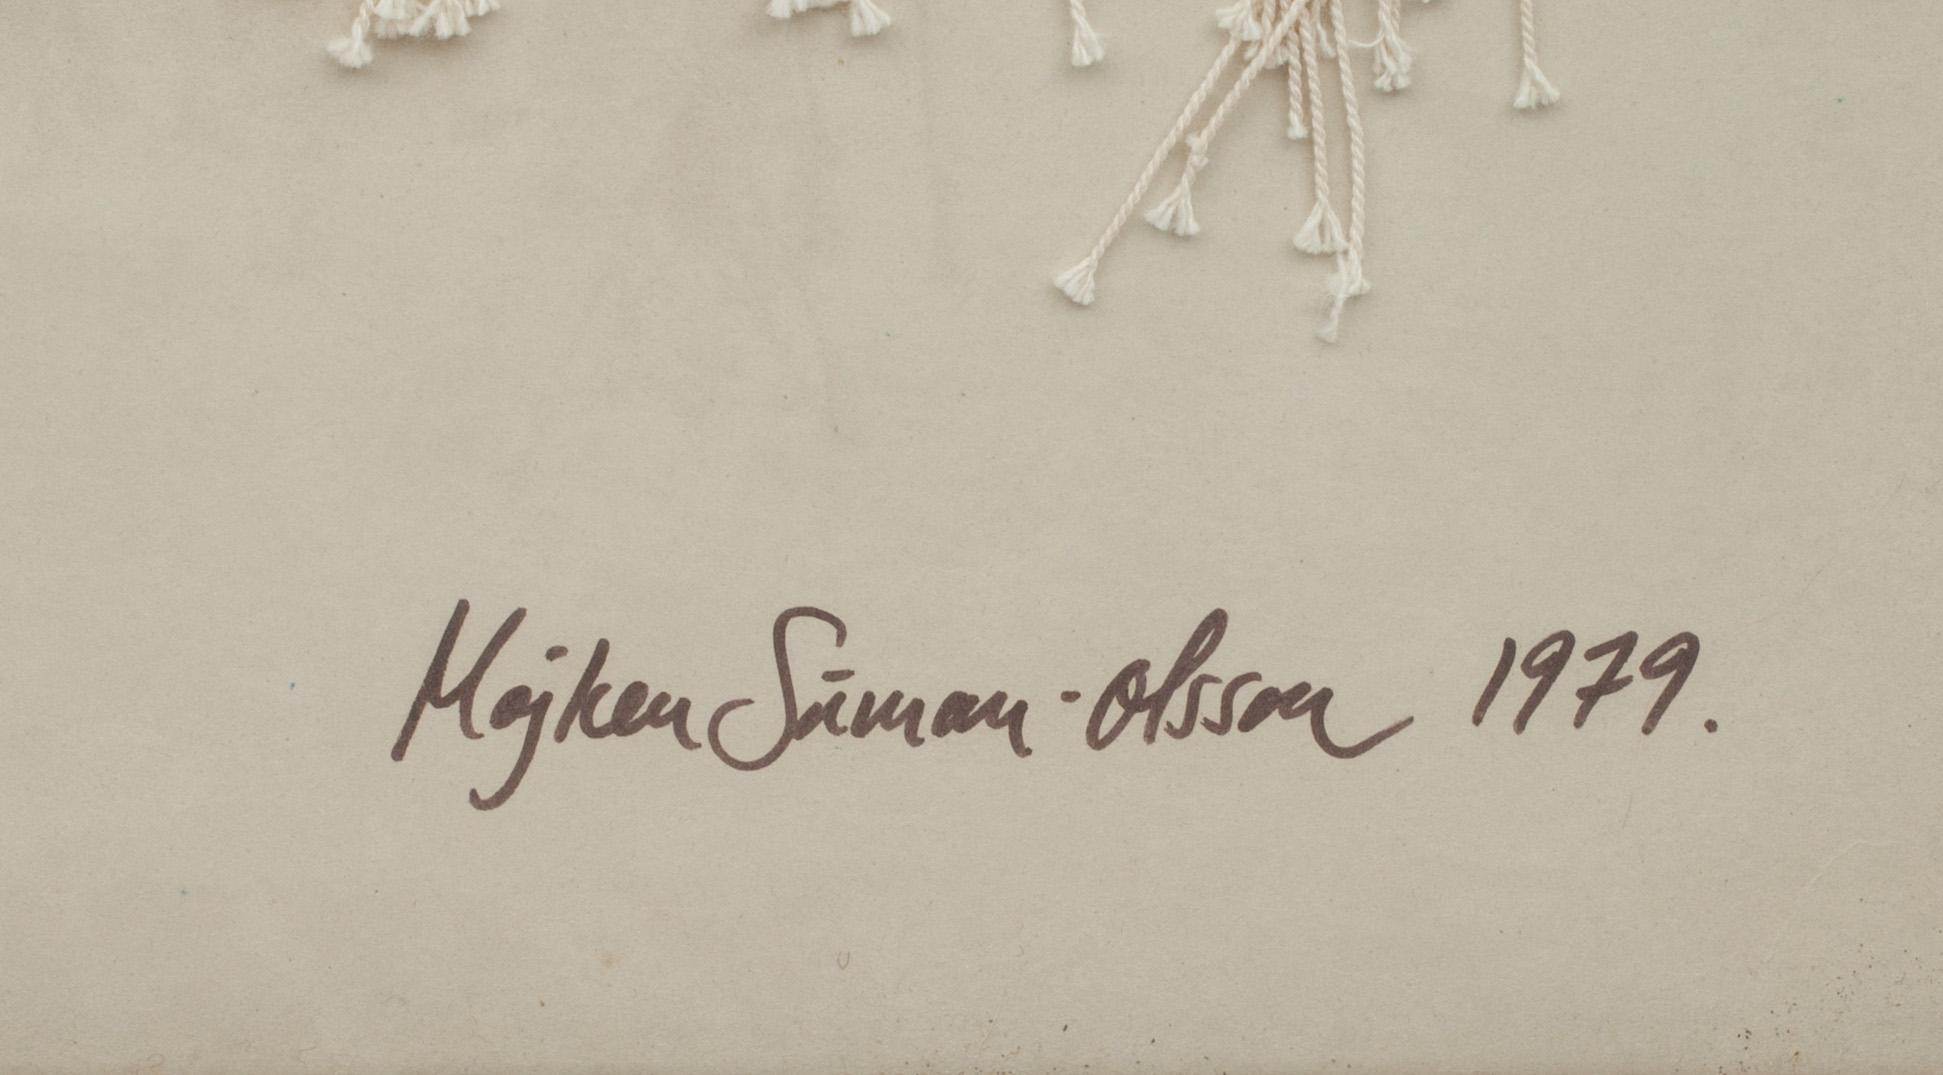 Majken Säman-Olsson 1979.